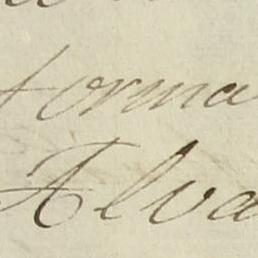 forma
Alva